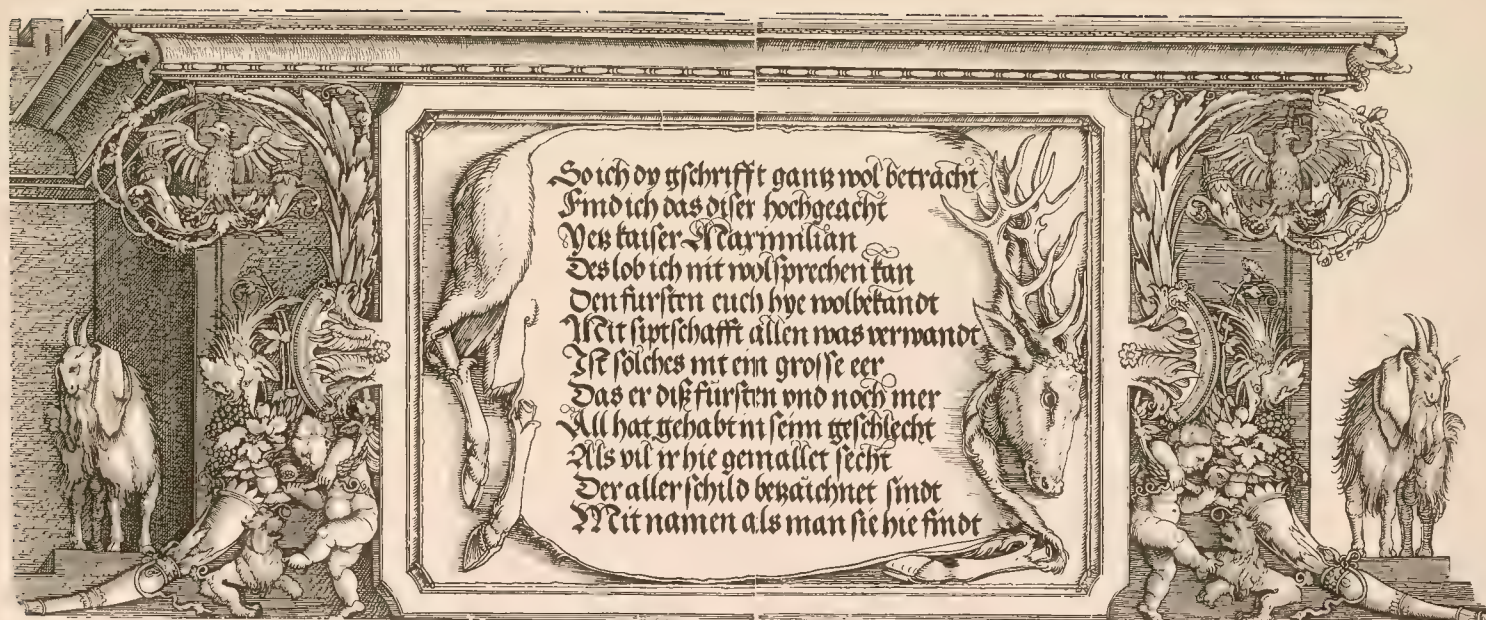 So ich dy gschrifft gantz wol betracht
Find ich das diser hochgeacht
Yetz kaiser Maximilian
Des lob ich nit wolsprechen kan
Den fursten euch hye wolbekandt
Mit siptschafft allen was verwandt
Ist solches nit ein grosse eer
Das er diß fursten vnd noch mer
All hat gehabt in seim geschlecht
Als vil ir hie gemallet secht
Der aller schild betzaichnet sindt
Mit namen als man sie hie findt